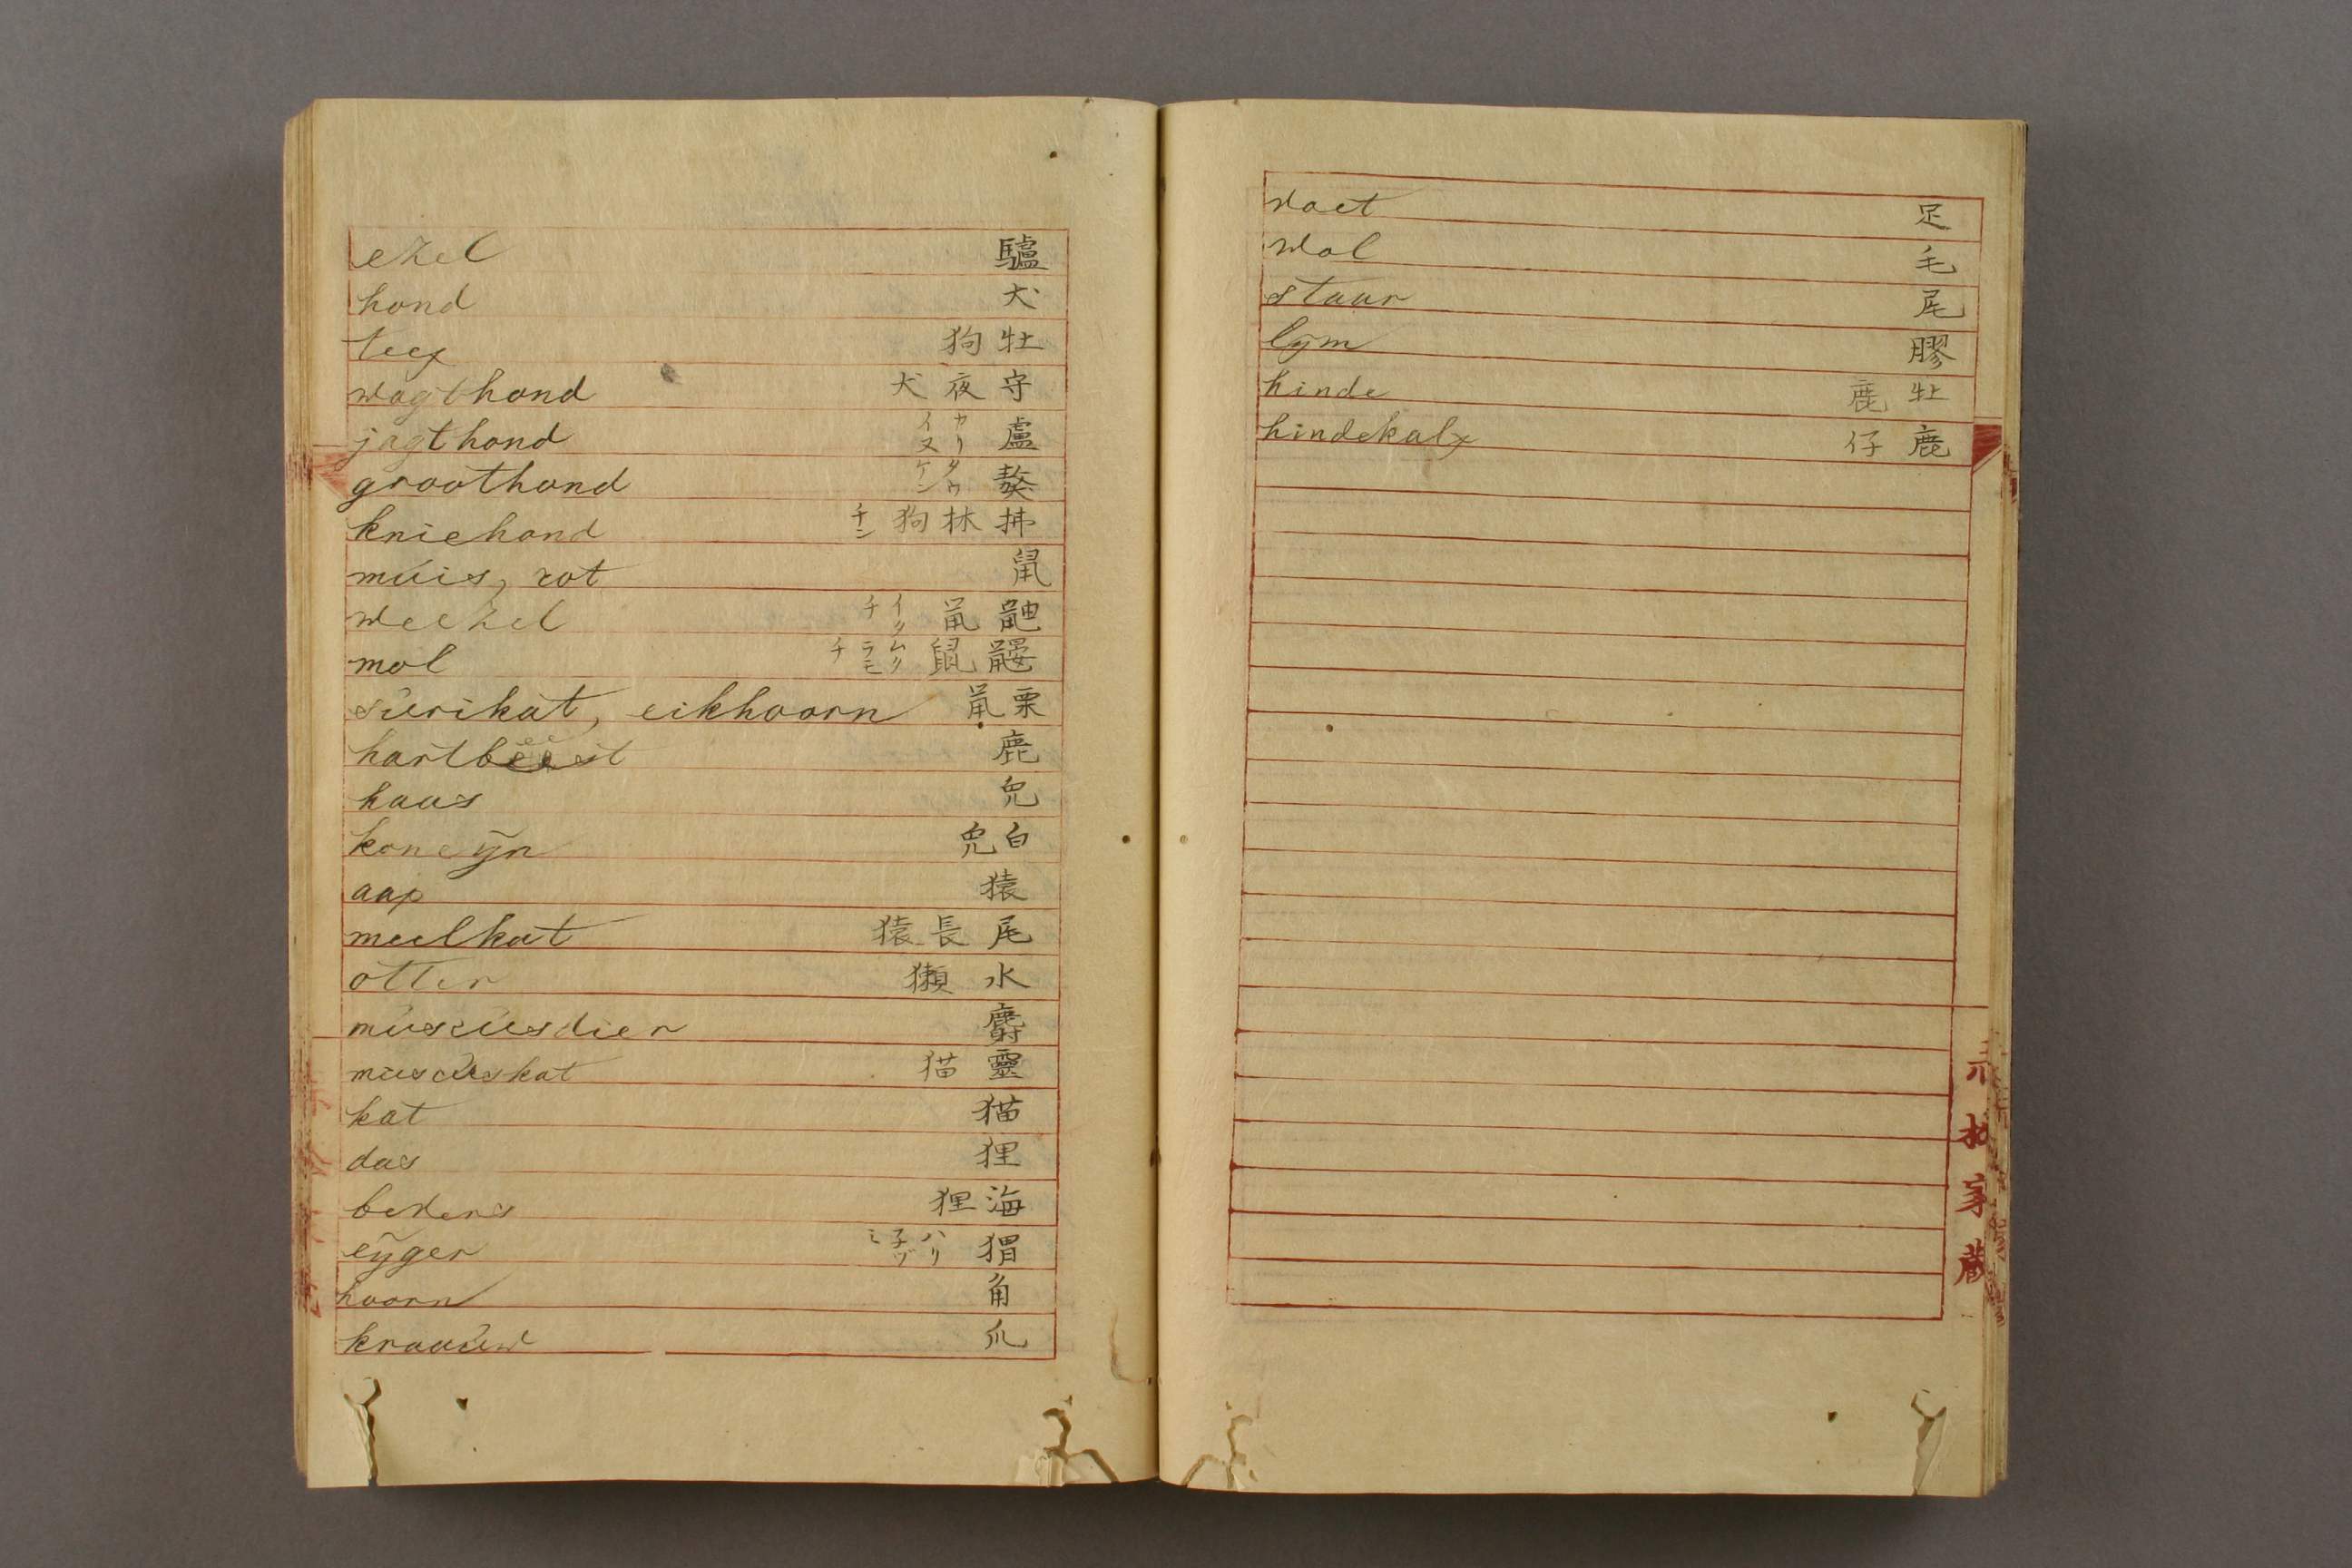 ezel 驢
hond 犬
teef 牡狗
wagthond 守夜犬
jagthond 盧 カリイヌ
groothond 獒 タウケン
kniehond 拂菻狗 チン
múis, rot 鼠
weezel 鼬鼠 イタチ
mol 鼹鼠 ムクラモチ
súrikat, eikhoorn 栗鼠
hartbeest 鹿
haas 兔
koneijn 白兔
aap 猿
meelkat 尾長猿
otter 水獺
múscúsdier 麝
muscuskat 靈猫
kat 猫
das 狸
bevers 海狸
eijger 猬 ハリ子ヅミ
hoorn 角
kraaúw 爪
voet 足
wol 毛
staar 尾
lijm 膠
hinde 牡鹿
hindekalf 鹿仔